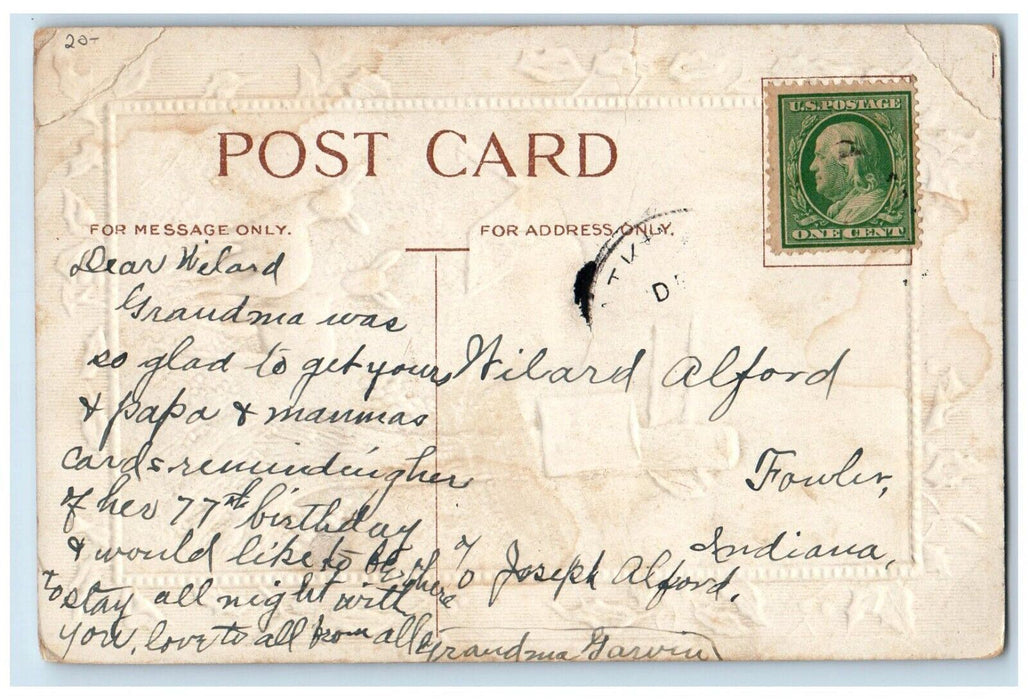 20-
POST CARD
U.S. POSTAGE
ONE CENT
FOR MESSAGE ONLY.
FOR ADDRESS ONLY.
Dear Wilard
Grandma was
so glad to get yours
& papa & manmas
cards reminding her
of her 77th birthday
& would like to be there
to stay all night with
you. love to all from all
Grandma Garwin
Wilard Alford
Fowler,
Indiana,
% Joseph Alford.